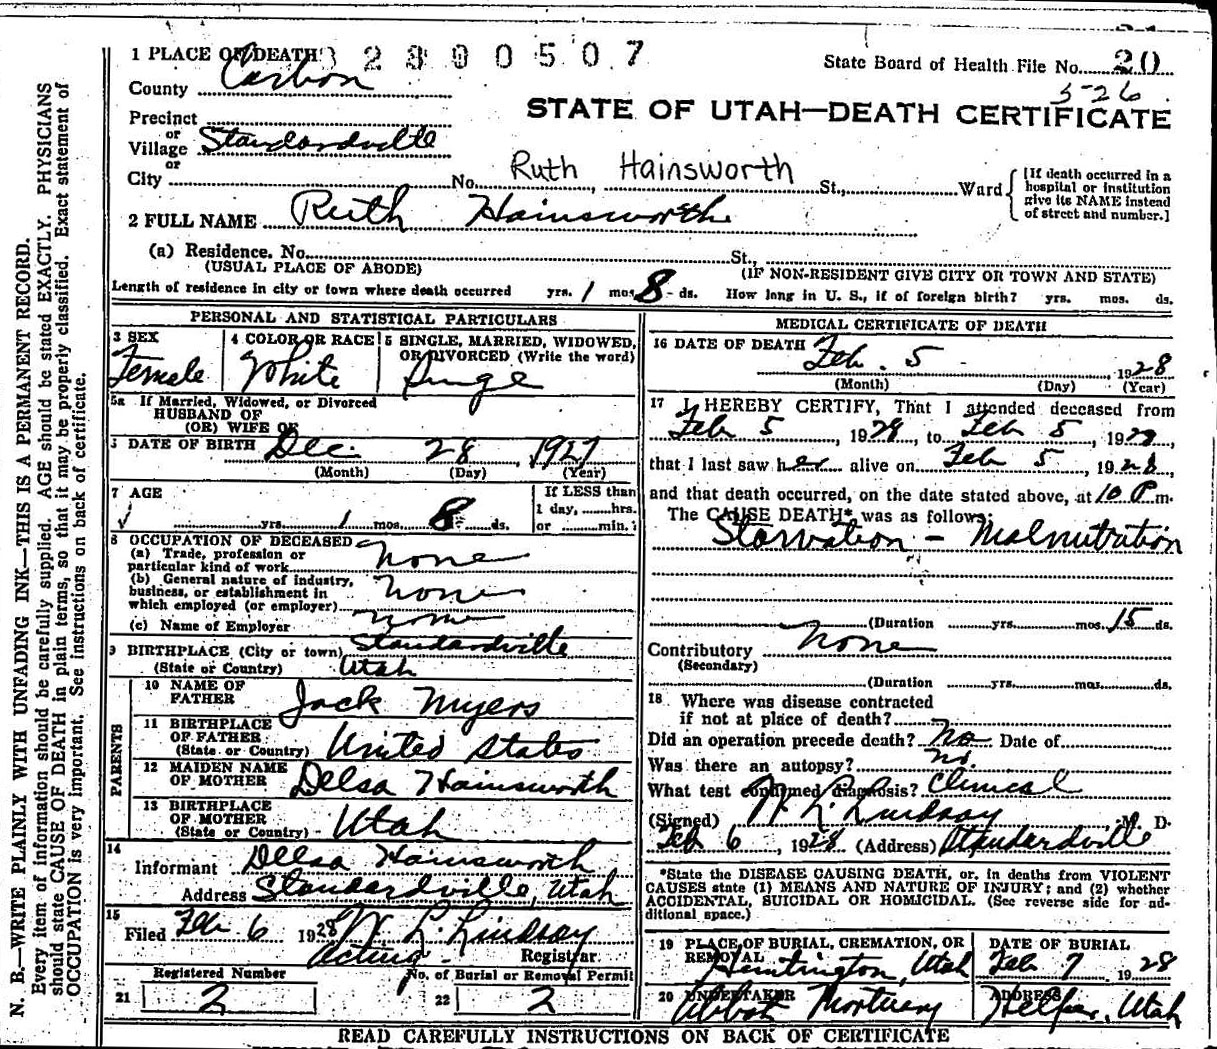 1 PLACE OF DEATH 3 2 8 9 0 0 5 0 7
State Board of Health File No. 20
County Carbon
5-26
STATE OF UTAH—DEATH CERTIFICATE
Precinct
or
Village Standardville
or
City No. Ruth Hainsworth St., Ward
[If death occurred in a
hospital or institution
give its NAME instead
of street and number.]
2 FULL NAME Ruth Hainsworth
(a) Residence. No. St.,
(USUAL PLACE OF ABODE) (IF NON-RESIDENT GIVE CITY OR TOWN AND STATE)
Length of residence in city or town where death occurred yrs. 1 mos. 8 ds. How long in U. S., if of foreign birth? yrs. mos. ds.
PERSONAL AND STATISTICAL PARTICULARS
3 SEX
Female
4 COLOR OR RACE
White
5 SINGLE, MARRIED, WIDOWED,
OR DIVORCED (Write the word)
Single
5a If Married, Widowed, or Divorced
HUSBAND OF
(OR) WIFE OF
DATE OF BIRTH Dec. 28, 1927
(Month) (Day) (Year)
7 AGE
yrs. 1 mos. 8 ds.
If LESS than
1 day, hrs.
or min.
8 OCCUPATION OF DECEASED
(a) Trade, profession or
particular kind of work none
(b) General nature of industry,
business, or establishment in
which employed (or employer) none
(c) Name of Employer none
9 BIRTHPLACE (City or town) Standardville
(State or Country) Utah
PARENTS
10 NAME OF
FATHER Jack Myers
11 BIRTHPLACE
OF FATHER
(State or Country) United States
12 MAIDEN NAME
OF MOTHER Delsa Hainsworth
13 BIRTHPLACE
OF MOTHER
(State or Country) Utah
14
Informant Delsa Hainsworth
Address Standardville, Utah
15
Filed Feb 6 1928 W L. Lindsay
Acting Registrar
Registered Number
21 2
No. of Burial or Removal Permit
22 2
MEDICAL CERTIFICATE OF DEATH
16 DATE OF DEATH Feb. 5, 1928
(Month) (Day) (Year)
17 I HEREBY CERTIFY, That I attended deceased from
Feb 5, 1928, to Feb 5, 1928,
that I last saw her alive on Feb 5, 1928,
and that death occurred, on the date stated above, at 10 P m.
The CAUSE DEATH* was as follows:
Starvation - Malnutration
(Duration yrs. mos. 15 ds.
Contributory none
(Secondary)
(Duration yrs. mos. ds.
18 Where was disease contracted
if not at place of death?
Did an operation precede death? No Date of
Was there an autopsy? No.
What test confirmed diagnosis? Clinical
(Signed) W L. Lindsay, M. D.
Feb 6, 1928 (Address) Standardville
*State the DISEASE CAUSING DEATH, or, in deaths from VIOLENT
CAUSES state (1) MEANS AND NATURE OF INJURY; and (2) whether
ACCIDENTAL, SUICIDAL OR HOMICIDAL. (See reverse side for ad-
ditional space.)
19 PLACE OF BURIAL, CREMATION, OR
REMOVAL
Huntington, Utah
DATE OF BURIAL
Feb 7, 1928
20 UNDERTAKER
Mortuary
ADDRESS
Helper, Utah
READ CAREFULLY INSTRUCTIONS ON BACK OF CERTIFICATE
N. B.—WRITE PLAINLY WITH UNFADING INK—THIS IS A PERMANENT RECORD.
Every item of information should be carefully supplied. AGE should be stated EXACTLY. PHYSICIANS
should state CAUSE OF DEATH in plain terms, so that it may be properly classified. Exact statement of
OCCUPATION is very important. See instructions on back of certificate.